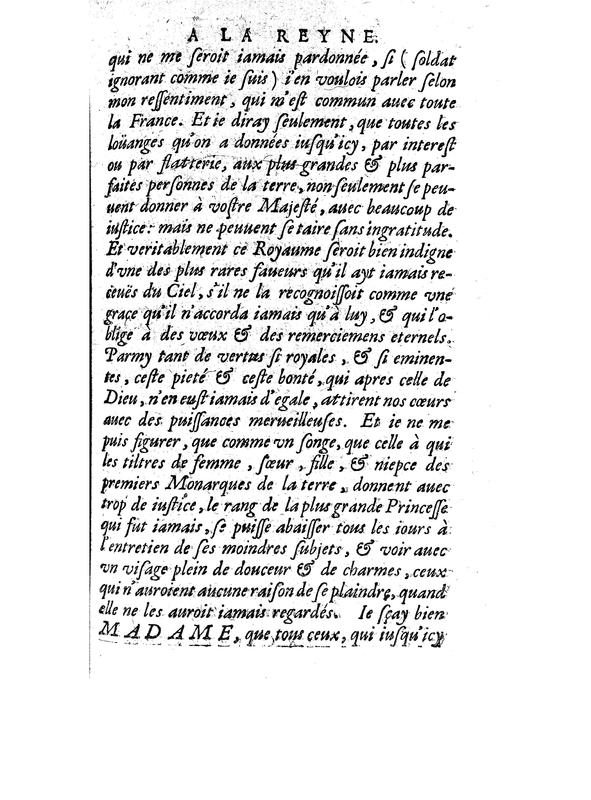 A LA REYNE.
qui ne me ſeroit iamais pardonnée, ſi ( ſoldat
ignorant comme ie ſuis ) i'en voulois parler ſelon
mon reſſentiment, qui m'eſt commun auec toute
la France. Et ie diray ſeulement, que toutes les
loüanges qu'on a données iuſqu'icy, par intereſt
ou par flatterie, aux plus grandes & plus par-
faites perſonnes de la terre, non ſeulement ſe peu-
uent donner à voſtre Majeſté, auec beaucoup de
iuſtice: mais ne peuuent ſe taire ſans ingratitude.
Et veritablement ce Royaume ſeroit bien indigne
d'vne des plus rares faueurs qu'il ayt iamais re-
ceuës du Ciel, s'il ne la recognoiſſoit comme vne
grace qu'il n'accorda iamais qu'à luy, & qui l'o-
blige à des vœux & des remerciemens eternels.
Parmy tant de vertus ſi royales, & ſi eminen-
tes, ceſte pieté & ceſte bonté, qui apres celle de
Dieu, n'en euſt iamais d'egale, attirent nos cœurs
auec des puiſſances merueilleuſes. Et ie ne me
puis figurer, que comme vn ſonge, que celle à qui
les tiltres de femme, ſœur, fille, & niepce des
premiers Monarques de la terre, donnent auec
trop de iuſtice, le rang de la plus grande Princeſſe
qui fut iamais, ſe puiſſe abaiſſer tous les iours à
l'entretien de ſes moindres ſubjets, & voir auec
vn viſage plein de douceur & de charmes, ceux
qui n'auroient aucune raiſon de ſe plaindre, quand
elle ne les auroit iamais regardés. Ie ſçay bien
MADAME, que tous ceux, qui iuſqu'icy